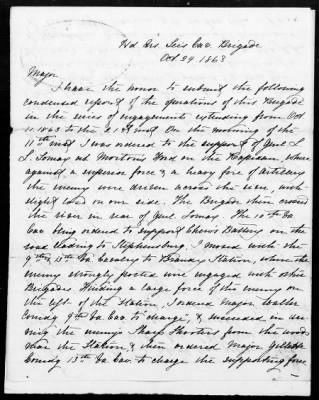 Hd Qrs Lee's Cav. Brigade
Oct 29 1863
Major
I have the honor to submit the following
condensed report of the operations of this Brigade
in the series of engagements extending from Oct
11, 1863 to the 21st inst. On the morning of the
11th inst I was ordered to the support of Genl L
L. Lomax at Morton's Ford on the Rapidan, where
against a superior force & a heavy fire of artillery
the enemy were driven across the river, with
slight loss on our side. The Brigade then crossed
the river in rear of Genl Lomax. The 10th Va
Cav being ordered to support Chew's Battery on the
road leading to Stephensburg, I moved with the
9th & 13th Va Cavalry to Brandy Station, where the
enemy strongly posted were engaged with other
Brigades. Finding a large force of the enemy on
the left of the Station, I ordered Major Waller
Comdg 9th Va Cav to charge, & succeeded in
the enemy's Sharp Shooters from the woods
near the Station, & then ordered Major Gillette
Comdg 13th Va Cav. to charge the supporting force